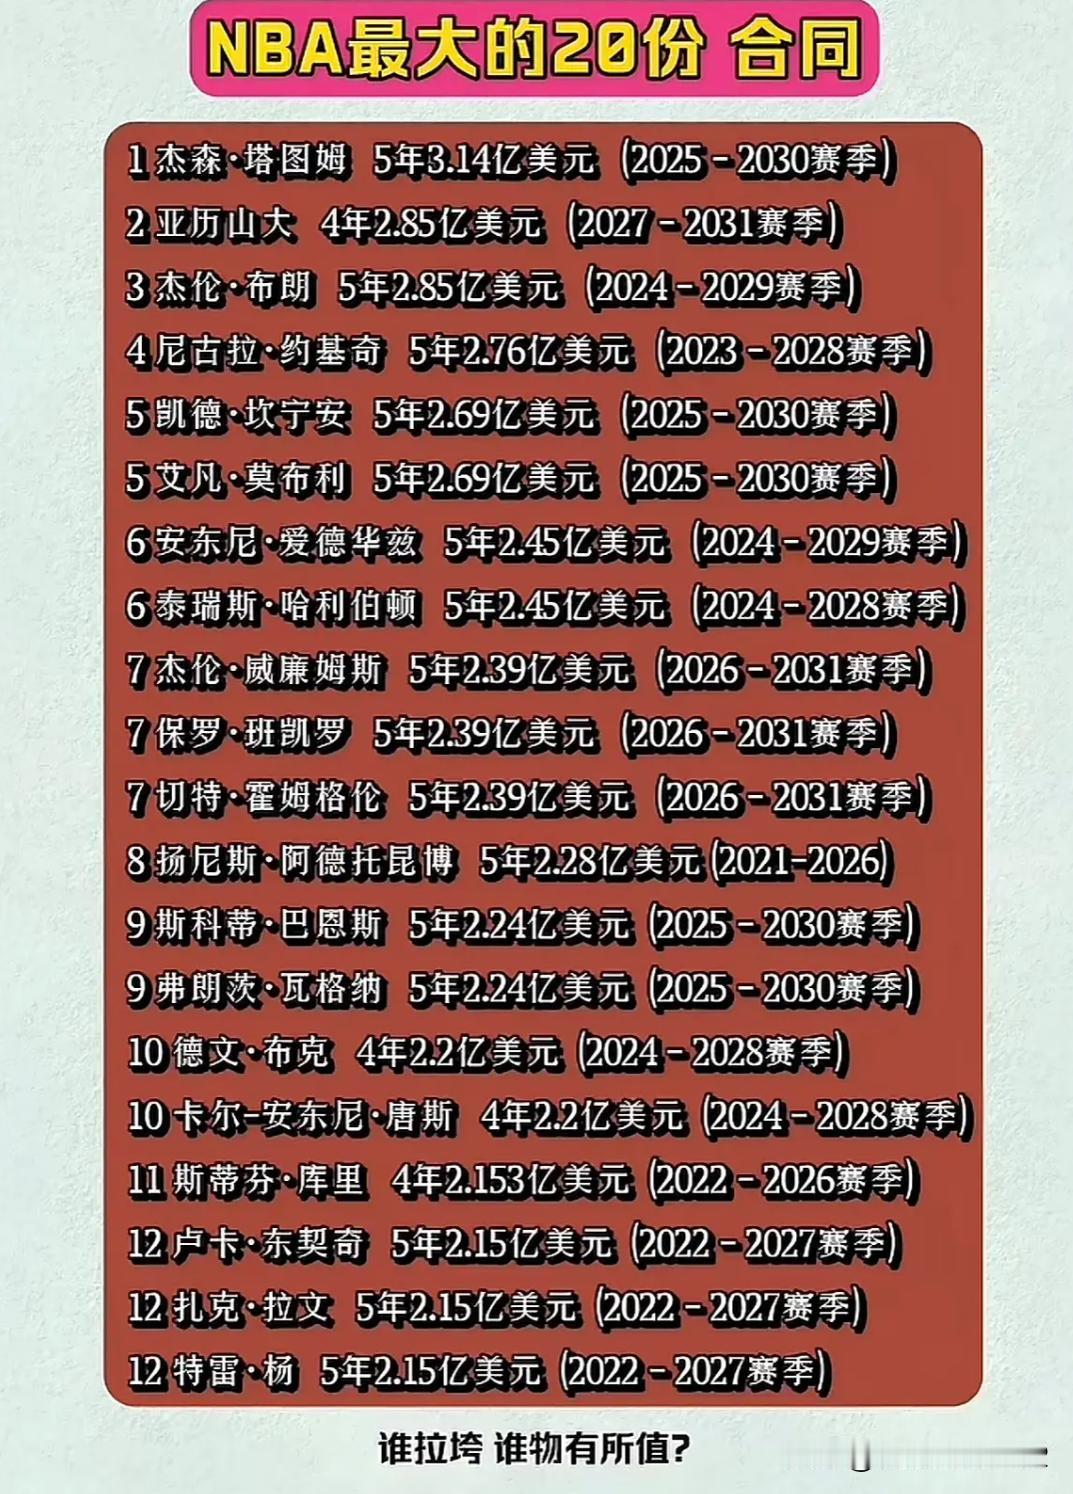 NBA最大的20份 合同
1 杰森·塔图姆 5年3.14亿美元 (2025-2030赛季)
2 亚历山大 4年2.85亿美元 (2027-2031赛季)
3 杰伦·布朗 5年2.85亿美元 (2024-2029赛季)
4 尼古拉·约基奇 5年2.76亿美元 (2023-2028赛季)
5 凯德·坎宁安 5年2.69亿美元 (2025-2030赛季)
5 艾凡·莫布利 5年2.69亿美元 (2025-2030赛季)
6 安东尼·爱德华兹 5年2.45亿美元 (2024-2029赛季)
6 泰瑞斯·哈利伯顿 5年2.45亿美元 (2024-2028赛季)
7 杰伦·威廉姆斯 5年2.39亿美元 (2026-2031赛季)
7 保罗·班凯罗 5年2.39亿美元 (2026-2031赛季)
7 切特·霍姆格伦 5年2.39亿美元 (2026-2031赛季)
8 扬尼斯·阿德托昆博 5年2.28亿美元 (2021-2026)
9 斯科蒂·巴恩斯 5年2.24亿美元 (2025-2030赛季)
9 弗朗茨·瓦格纳 5年2.24亿美元 (2025-2030赛季)
10 德文·布克 4年2.2亿美元 (2024-2028赛季)
10 卡尔-安东尼·唐斯 4年2.2亿美元 (2024-2028赛季)
11 斯蒂芬·库里 4年2.153亿美元 (2022-2026赛季)
12 卢卡·东契奇 5年2.15亿美元 (2022-2027赛季)
12 扎克·拉文 5年2.15亿美元 (2022-2027赛季)
12 特雷·杨 5年2.15亿美元 (2022-2027赛季)
谁拉垮 谁物有所值?